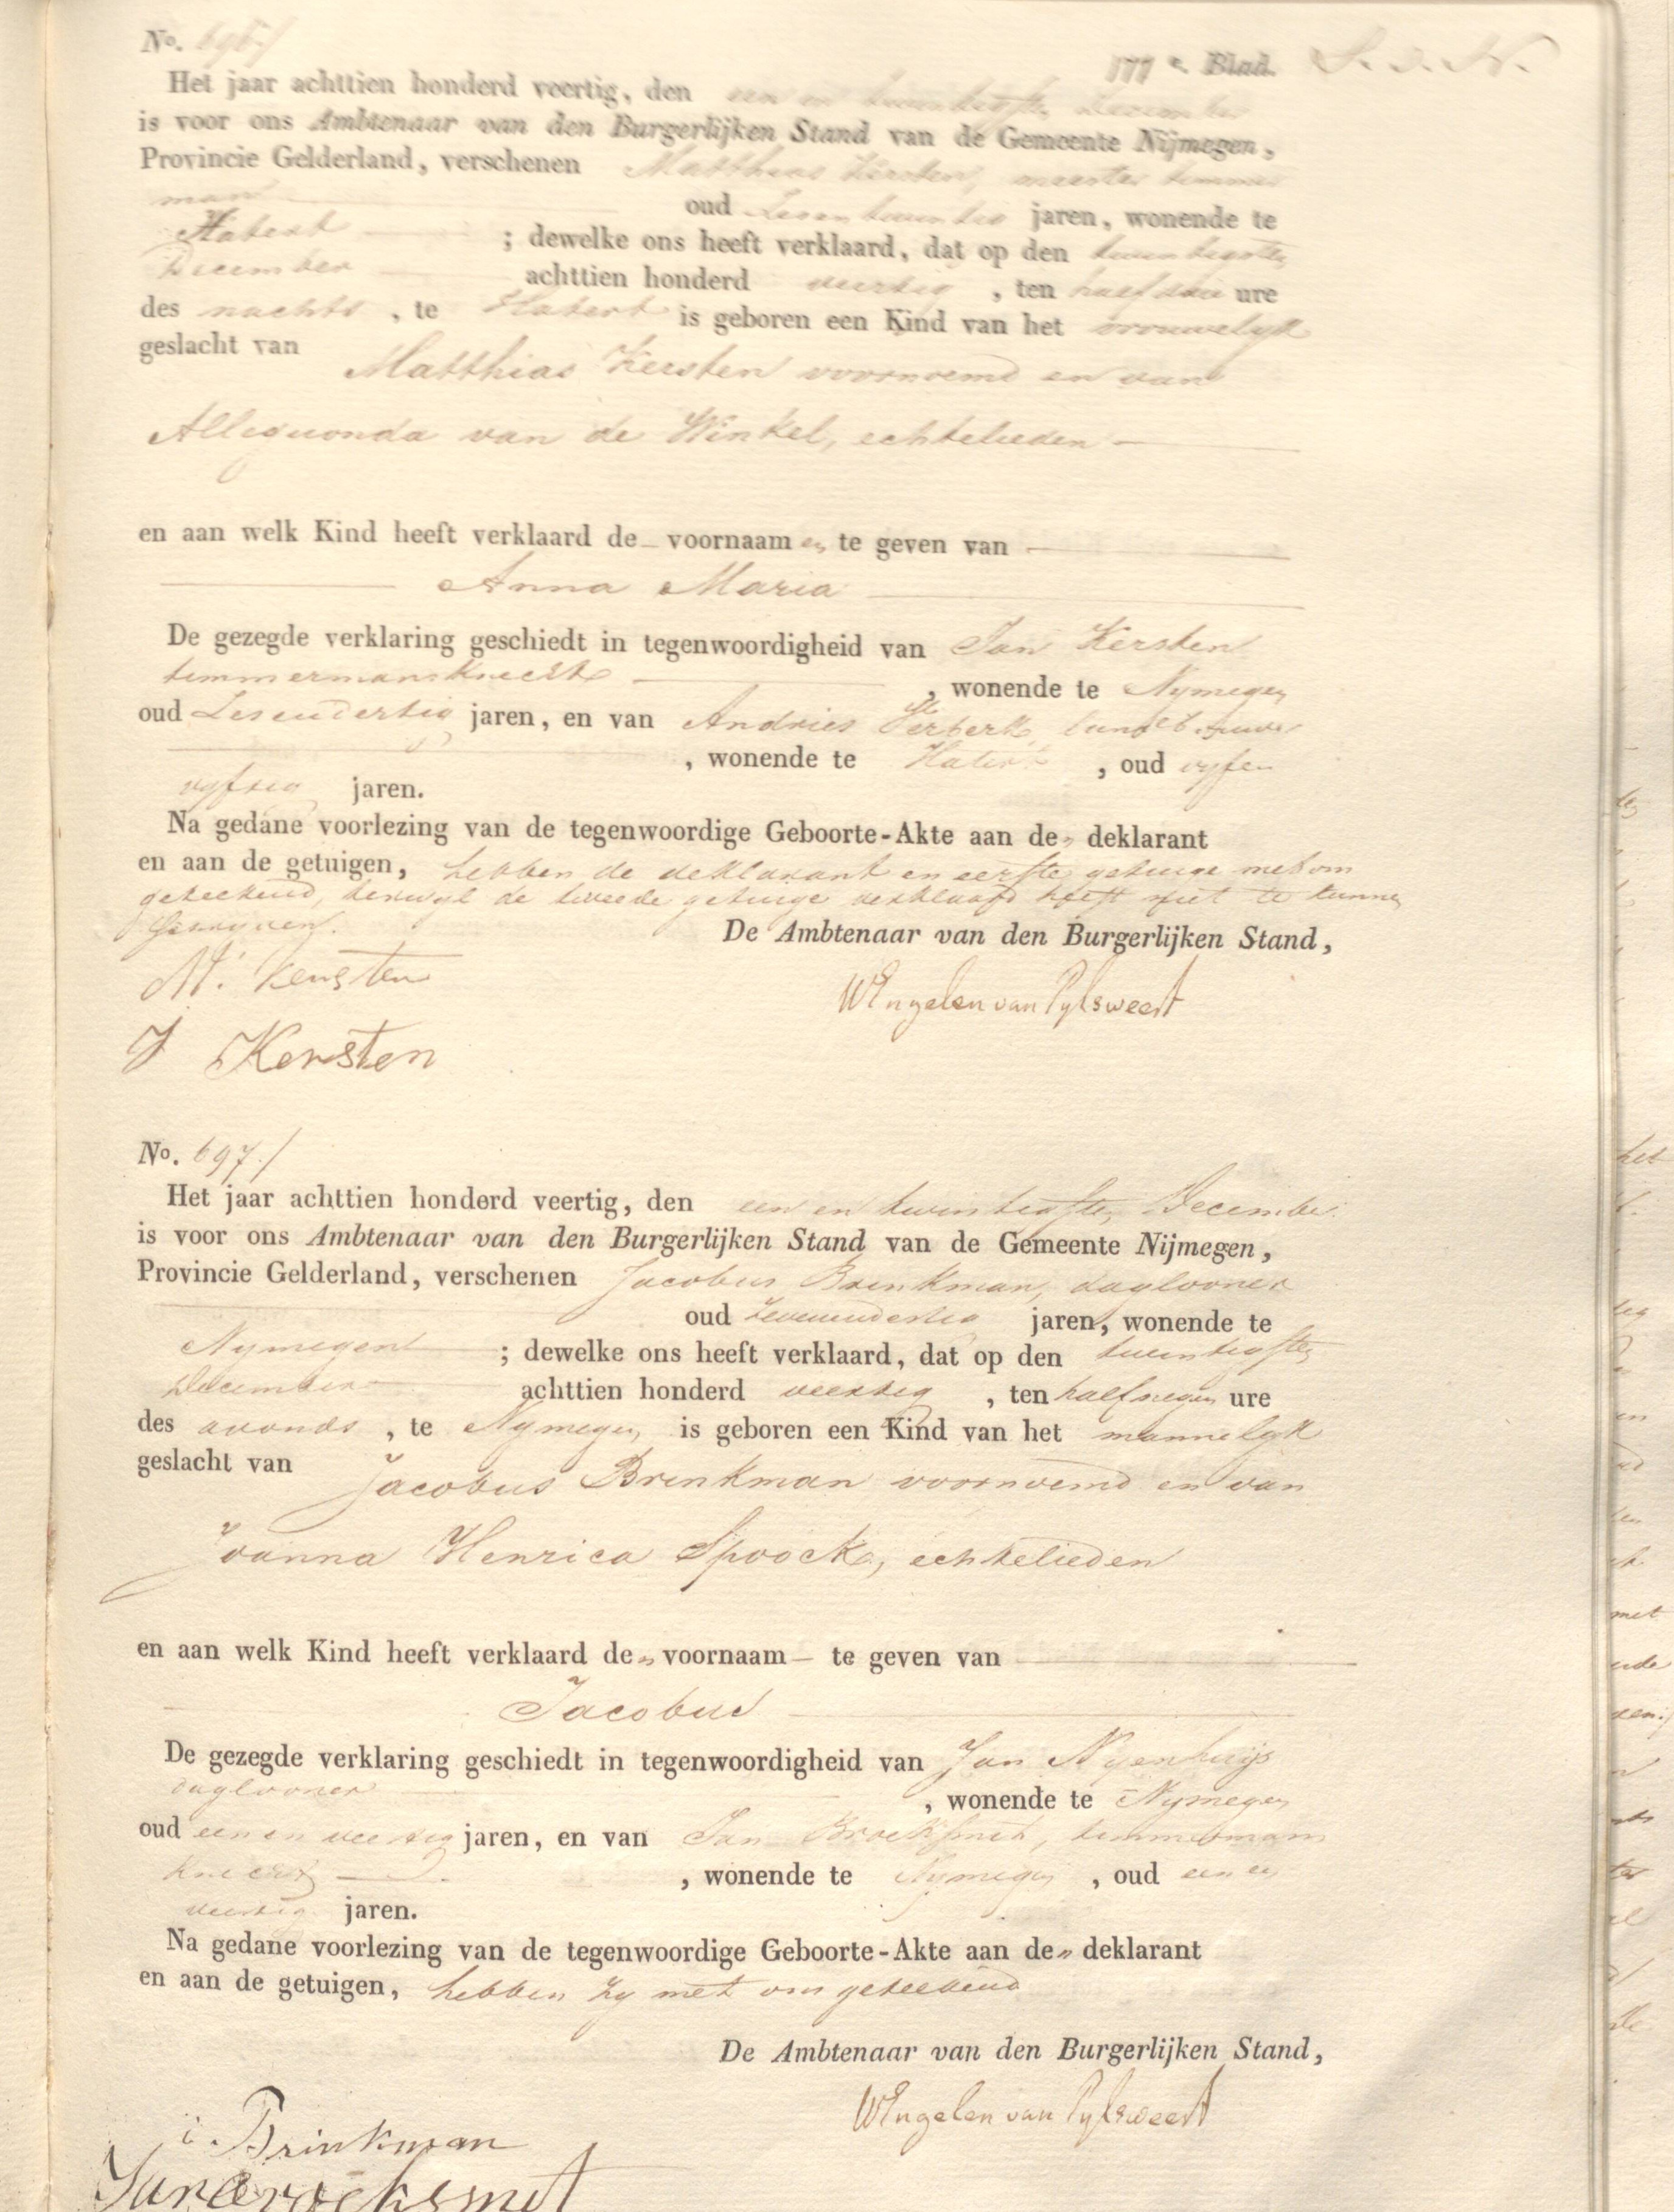 No. 696./
177e. Blad.
Het jaar achttien honderd veertig, den een en twintigsten December
is voor ons Ambtenaar van den Burgerlijken Stand van de Gemeente Nijmegen,
Provincie Gelderland, verschenen Matthias Kersten, meester timmer
man oud jaren, wonende te
Hatert ; dewelke ons heeft verklaard, dat op den twintigsten
December achttien honderd veertig, ten half drie ure
des nachts, te Hatert is geboren een Kind van het vrouwelyk
geslacht van
Matthias Kersten voornoemd en van
Allegonda van de Winkel, echtelieden
en aan welk Kind heeft verklaard de voornaamen te geven van
Anna Maria
De gezegde verklaring geschiedt in tegenwoordigheid van Jan Kersten
timmermansknecht, wonende te Nymegen
oud Zesendertig jaren, en van Andries landbouwer
, wonende te Hatert, oud vyfen
vyftig jaren.
Na gedane voorlezing van de tegenwoordige Geboorte-Akte aan den deklarant
en aan de getuigen, hebben de deklarant en eerste getuige met ons
geteekend, terwyl de tweede getuige verklaard heeft niet te kunnen
schryven.
De Ambtenaar van den Burgerlijken Stand,
M. Kersten
WEngelen van Pylsweert
J Kersten
No. 697./
Het jaar achttien honderd veertig, den een en twintigsten December
is voor ons Ambtenaar van den Burgerlijken Stand van de Gemeente Nijmegen,
Provincie Gelderland, verschenen Jacobus Brinkman, daglooner
oud zevenendertig jaren, wonende te
Nymegen ; dewelke ons heeft verklaard, dat op den twintigsten
December achttien honderd veertig, ten half negen ure
des avonds, te Nymegen is geboren een Kind van het mannelyk
geslacht van
Jacobus Brinkman voornoemd en van
Joanna Henrica Spoock, echtelieden
en aan welk Kind heeft verklaard den voornaam te geven van
Jacobus
De gezegde verklaring geschiedt in tegenwoordigheid van Jan Nyenhuijs
daglooner, wonende te Nymegen
oud eenenveertig jaren, en van Jan Broeksmit, timmermans
knecht, wonende te Nymegen, oud een en
veertig jaren.
Na gedane voorlezing van de tegenwoordige Geboorte-Akte aan den deklarant
en aan de getuigen, hebben zy met ons geteekend
De Ambtenaar van den Burgerlijken Stand,
WEngelen van Pylsweert
Brinkman
Jan Broeksmit